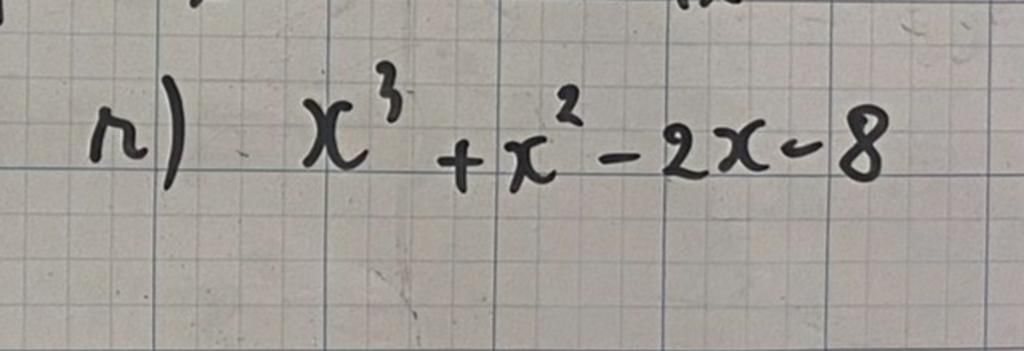 n) x³ + x² - 2x - 8